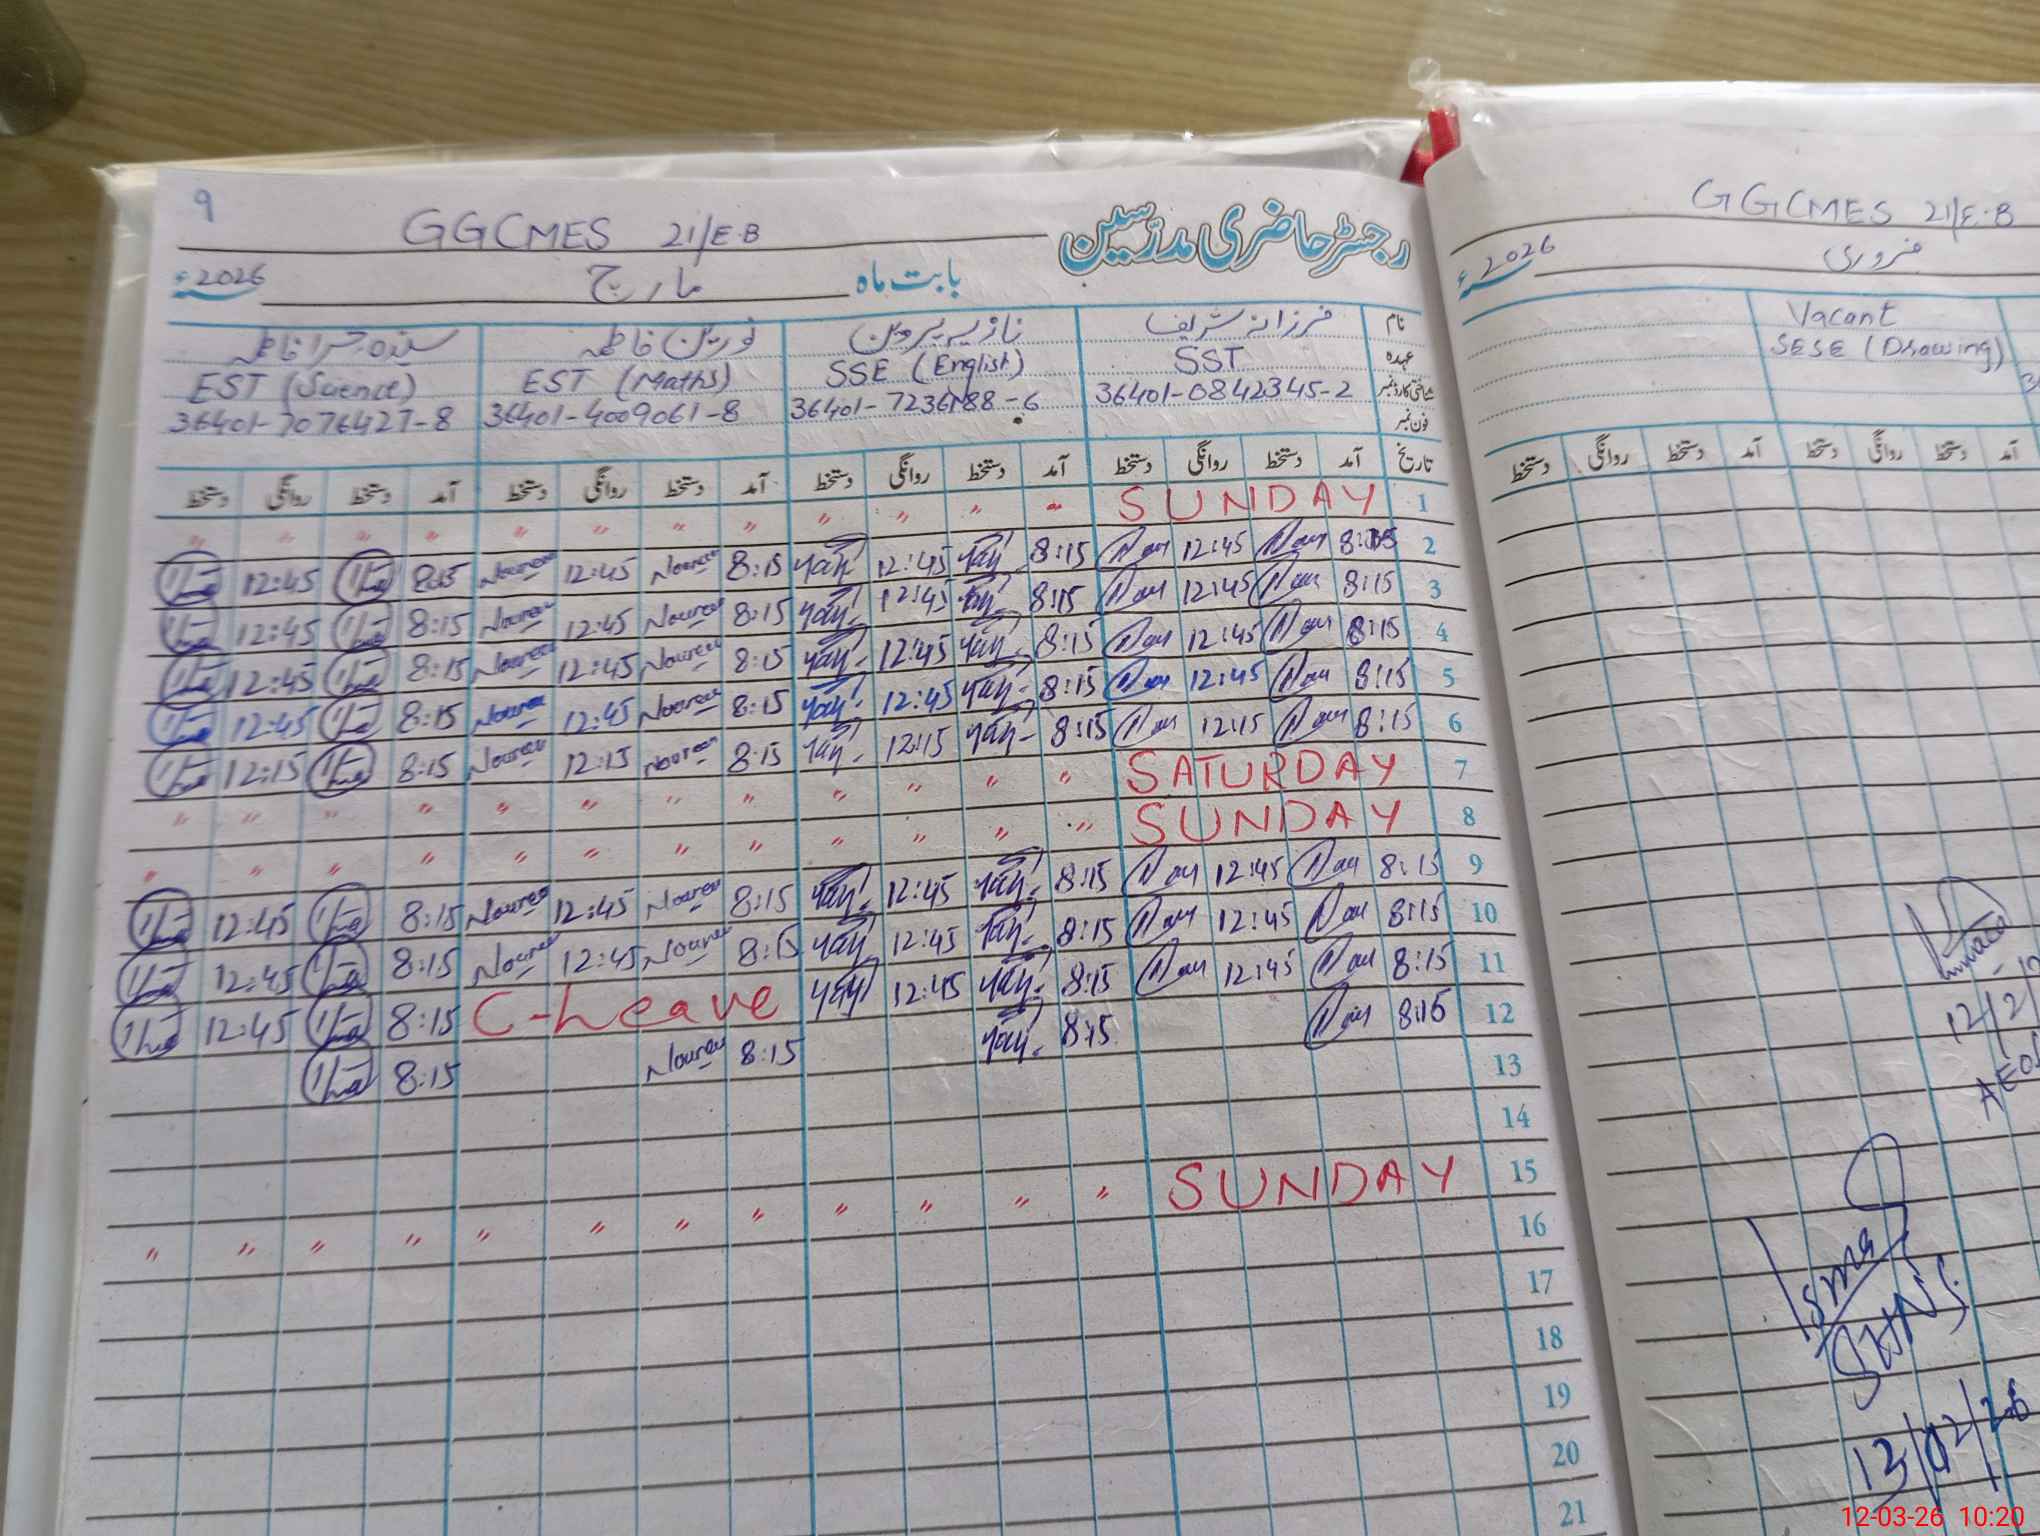 9
GGCMES 21/E.B
رجسٹر حاضری مدرّسین
2026ء مارچ بابت ماہ
نام فرزانہ شریف نازیہ پروین نورین فاطمہ سیدہ فاطمہ
عہدہ SST SSE (English) EST (Maths) EST (Science)
شناختی کارڈ نمبر 36401-0842345-2 36401-4009061-8 36401-7076427-8
فون نمبر
تاریخ آمد دستخط روانگی دستخط آمد دستخط روانگی دستخط آمد دستخط روانگی دستخط آمد دستخط روانگی دستخط
1 SUNDAY " " " " " " " " " " " "
2 8:15 12:45 8:15 12:45 8:15 Noureen 12:45 Noureen 8:15 12:45
3 8:15 12:45 8:15 12:45 8:15 Noureen 12:45 Noureen 8:15 12:45
4 8:15 12:45 8:15 12:45 8:15 Noureen 12:45 Noureen 8:15 12:45
5 8:15 12:45 8:15 12:45 8:15 Noureen 12:45 Noureen 8:15 12:45
6 8:15 12:15 8:15 12:15 8:15 Noureen 12:15 Noureen 8:15 12:15
7 SATURDAY " " " " " " " " " " " "
8 SUNDAY " " " " " " " " " " " "
9 8:15 12:45 8:15 12:45 8:15 Noureen 12:45 Noureen 8:15 12:45
10 8:15 12:45 8:15 12:45 8:15 Noureen 12:45 Noureen 8:15 12:45
11 8:15 12:45 8:15 12:45 C-Leave 8:15 12:45
12 8:15 8:15 8:15 Noureen 8:15
13
14
15 SUNDAY " " " " " " " " " " " "
16
17
18
19
20
21
GGCMES 21/E.B
2026ء فروری
Vacant
SESE (Drawing)
آمد دستخط روانگی دستخط آمد دستخط روانگی دستخط
12/2/
AEO
12-03-26 10:20